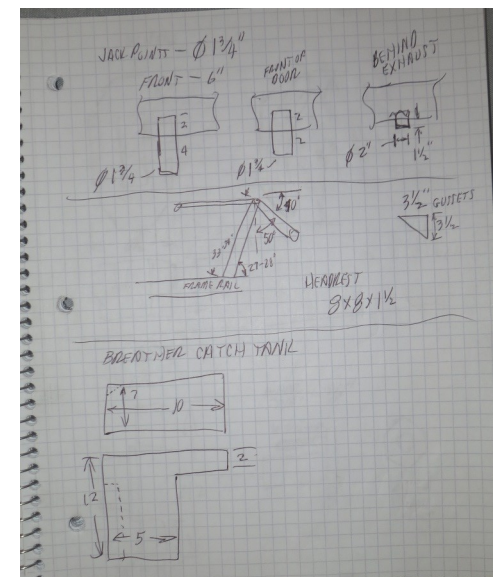 JACK POINTS - Ø 1 3/4"
FRONT - 6"
FRONT OF DOOR
BEHIND EXHAUST
2
4
Ø 1 3/4
2
2
Ø 1 3/4
Ø 2"
1 1/2"
40°
50°
FRAME RAIL
3 1/2" GUSSETS
3 1/2
HEADREST
8x8x1 1/2
BREATHER CATCH TANK
7
10
2
12
5